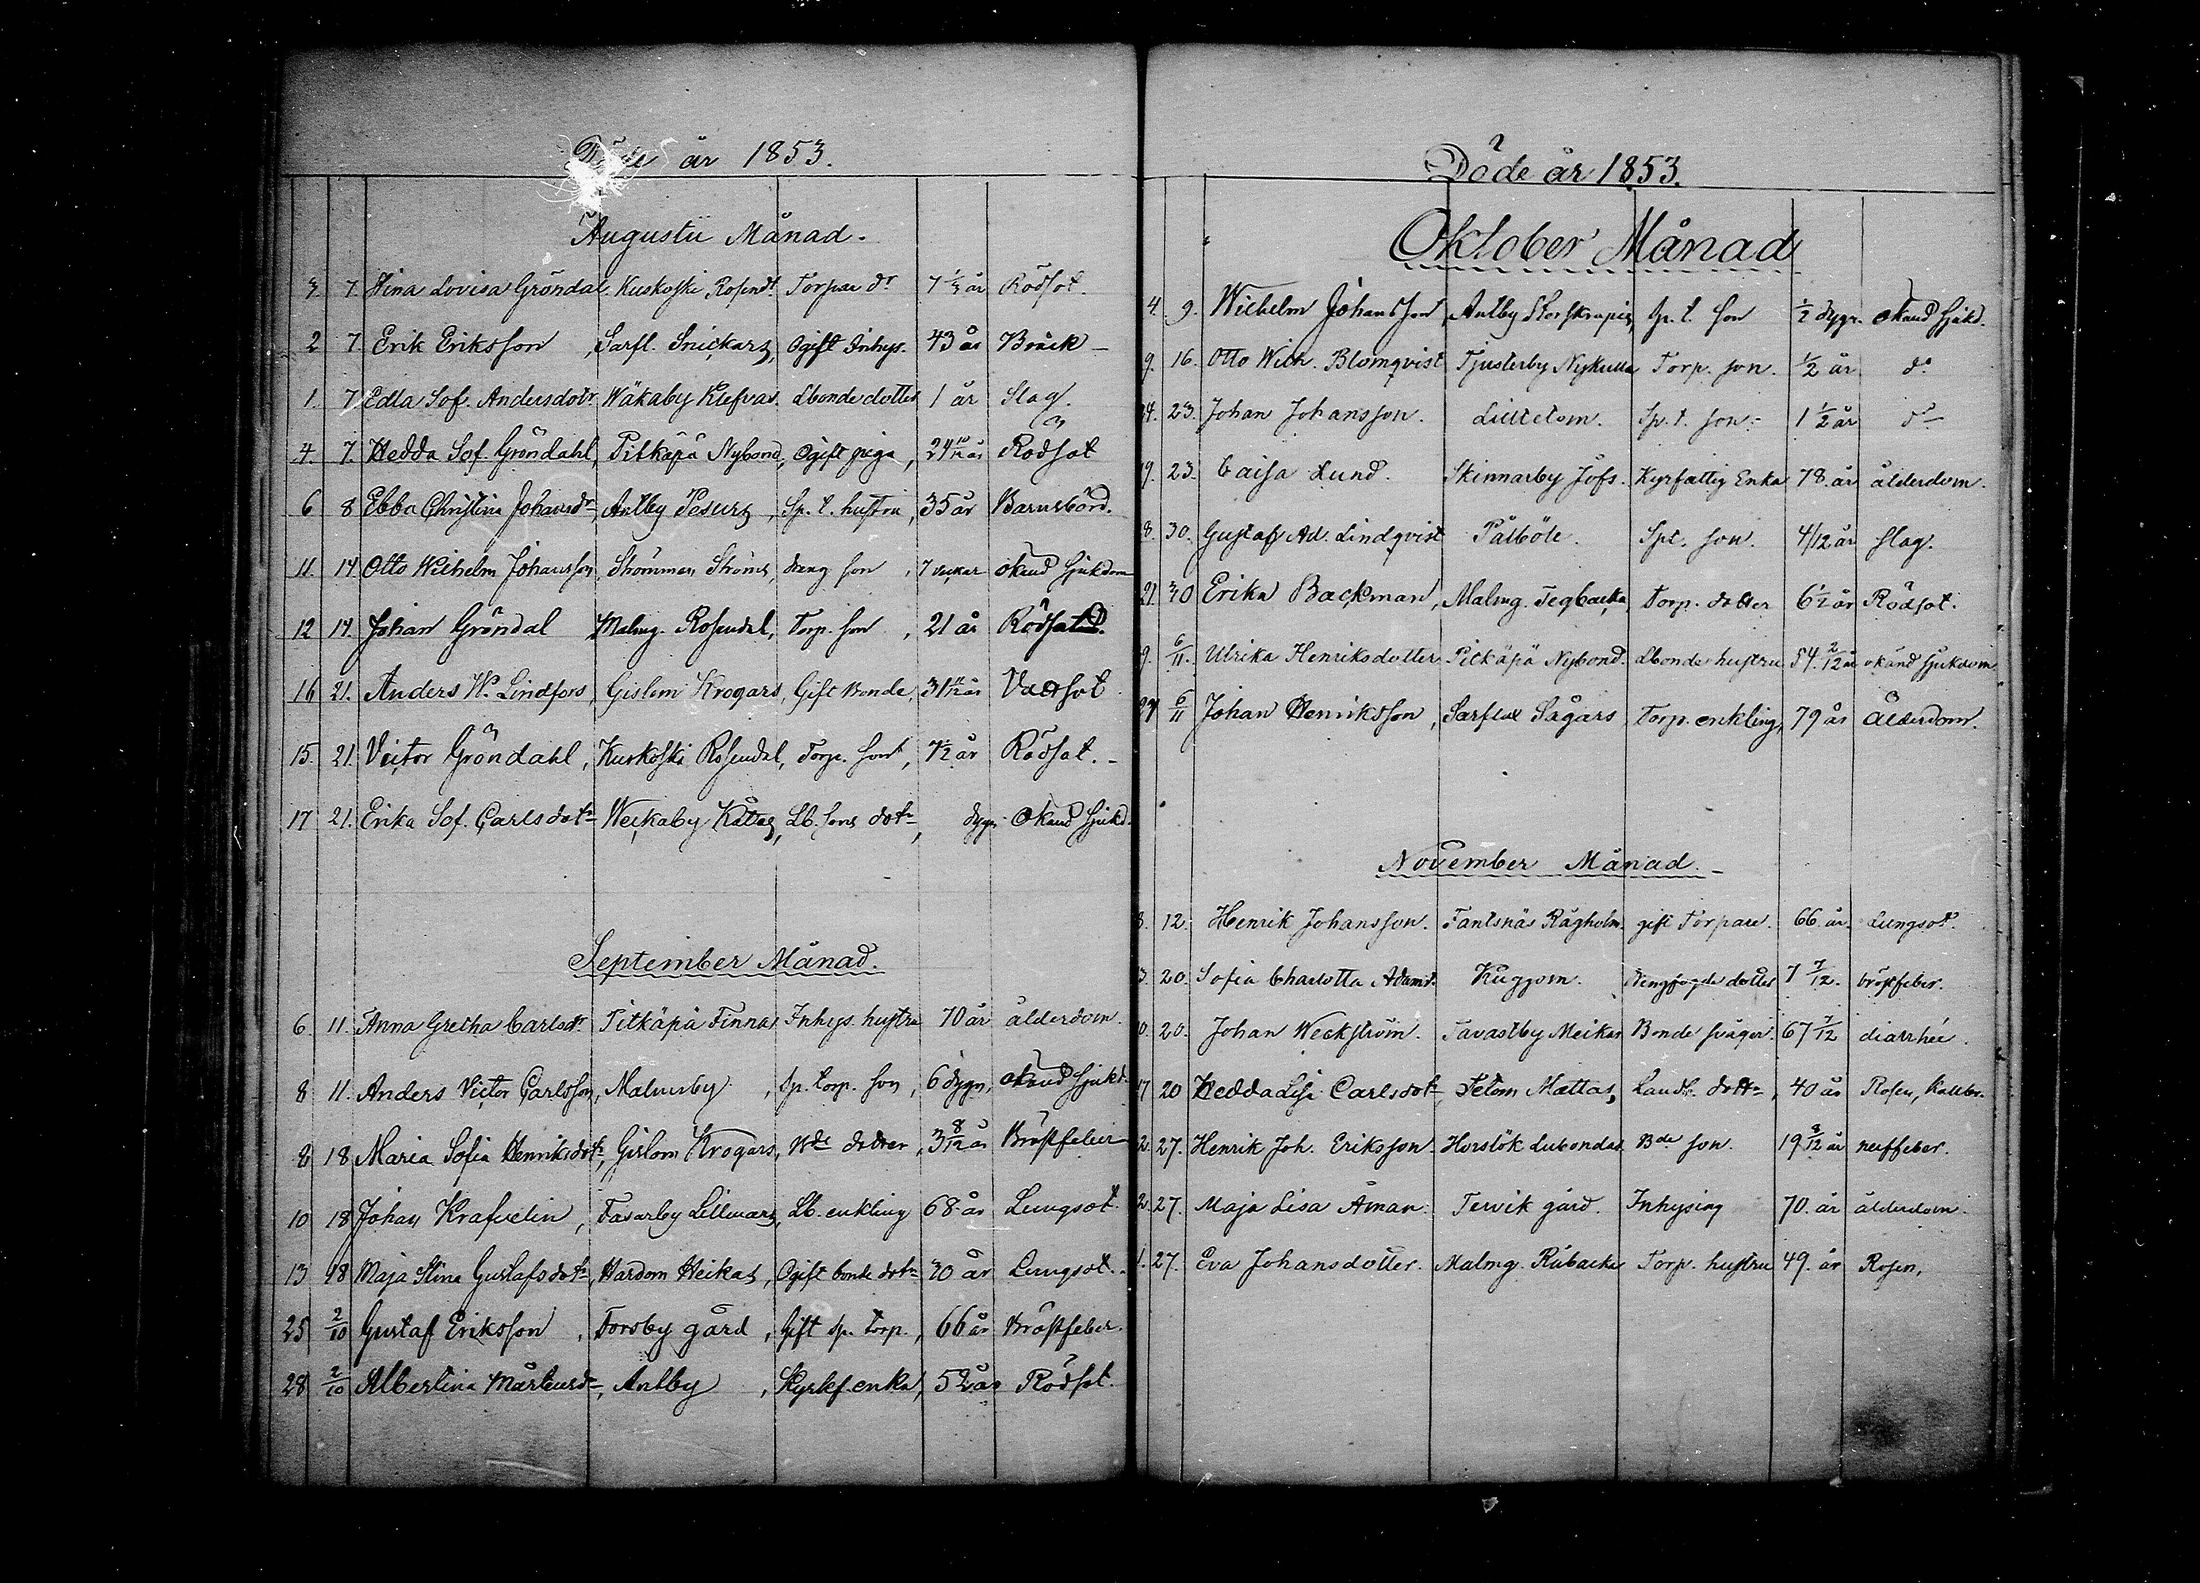 Döde år 1853.
Augusti Månad.
3. 7. Stina Lovisa Gröndal. Kuskoski Rosendl Torpare dr 7 1/2 år Rödsot.
2 7 Erik Eriksson, Sarfl. Snickars, Ogift Inhys. 43 år Bråck
1. 7 Edla Sof. Andersdotr. Wäkaby Klefvas. Lbonde dotter 1 år Slag.
4. 7. Hedda Sof. Gröndahl, Pitkäpä Nybond, Ogift piga, 24 10/12 år Rödsot
6 8 Ebba Christina Johansdr, Antby Pesurs, Sp. t. hustru, 35 år Barnsbörd.
11. 14 Otto Wilhelm Johansson, Strömmen Ströms, dräng son, 7 veckor okänd sjukdom
12 14. Johan Gröndal Malmg. Rosendal, Torp. son, 21 år Rödsot.
16 21. Anders W. Lindfors, Gislom Krogars, Gift Bonde, 31 11/12 år Vattsot
15. 21. Victor Gröndahl, Kuskoski Rosendal, Torp. son, 7 1/2 år Rödsot.
17 21. Erika Sof. Carlsdotr Weckaby Kåttas, Lb. sons dotr, dygn okänd sjukd.
September Månad.
6. 11. Anna Gretha Carlsdr. Pitkäpä Finnas Inhys. hustru 70 år ålderdom.
8 11. Anders Victor Carlsson, Malmsby, Sp. torp. son, 6 dygn, okänd sjukd.
8 18 Maria Sofia Henriksdotr, Gislom Krogars, Bde dotter, 3 8/12 år Bröstfeber
10 18 Johan Krafvelin, Tavarby Lillmars, Lb. enkling 68 år Lungsot.
13 18 Maja Stina Gustafsdotr, Hardom Heikas, Ogift bonde dotr 30 år Lungsot.
25 2/10 Gustaf Eriksson, Forsby gård, Gift sp. torp., 66 år Bröstfeber.
28 2/10 Albertina Mårtensdr, Antby, Kyrkf. enka, 52 år Rödsot.
Döde år 1853.
Oktober Månad
4. 9. Wilhelm Johansson, Antby Storskrapis, Sp. t. son 1/2 dygn. okänd sjukd.
9. 16. Otto Wilh. Blomqvist Tjusterby Nykulla Torp. son. 1/2 år do
14. 23. Johan Johansson. Lillelom. Sp. t. son. 1 1/2 år do
19. 23. Caisa Lund. Skinnarby Jofs. Kyrfattig Enka 78. år ålderdom.
8. 30. Gustaf Ad. Lindqvist Påtböle. Spt. son. 4/12 år slag.
21. 30 Erika Backman, Malmg. Tegbacka, Torp. dotter 6 1/2 år Rödsot.
9. 6/11. Ulrika Henriksdotter Pitkäpä Nybond. Lbonde hustru 54. 2/12 år okänd sjukdom
27 6/11 Johan Henriksson, Sarflax Sågars Torp. enkling, 79 år Ålderdom.
November Månad.
3. 12. Henrik Johansson. Fantsnäs Rågholm. gift Torpare. 66 år. Lungsot.
3. 20. Sofia Charlotta Adamsd. Kuggom. Rengfogde dotter 7 7/12. bröstfeber.
0. 20. Johan Weckström. Tavastby Meikas Bonde svåger. 67 7/12 diarrhée.
17 20 Hedda Lisa Carlsdotr, Tetom Mattas, Landb. dottr, 40 år Rosen, kallbr.
2. 27. Henrik Joh. Eriksson. Horslök Lubondas Bde son. 19 8/12 år nerffeber.
2. 27. Maja Lisa Åman. Tervik gård. Inhysing 70. år ålderdom.
1. 27. Eva Johansdotter. Malmg. Råbacka Torp. hustru 49. år Rosen.